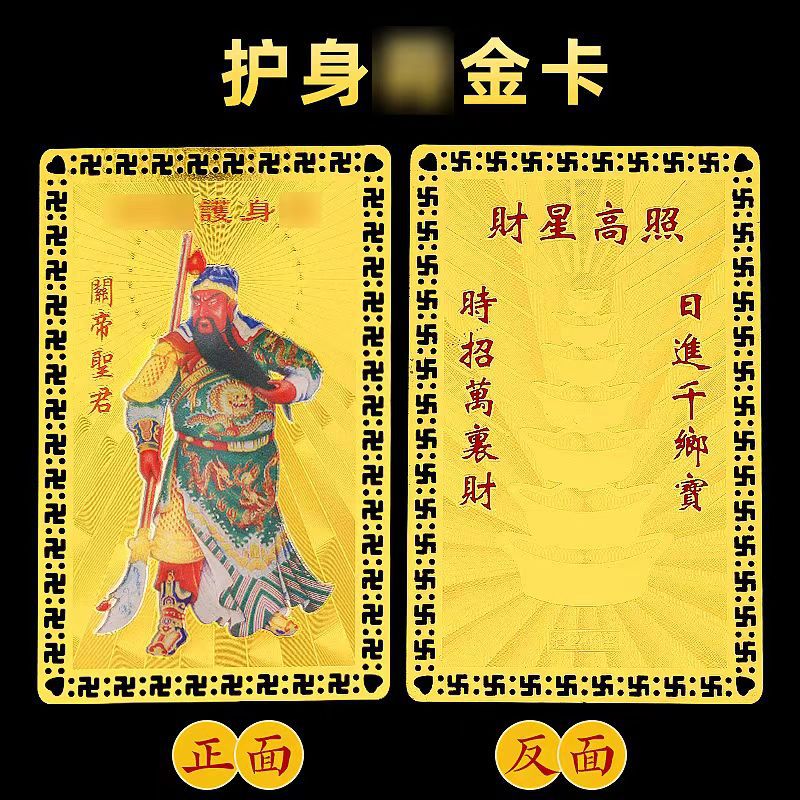 护身金卡
護身
關帝聖君
財星高照
日進千鄉寶
時招萬裏財
正面
反面